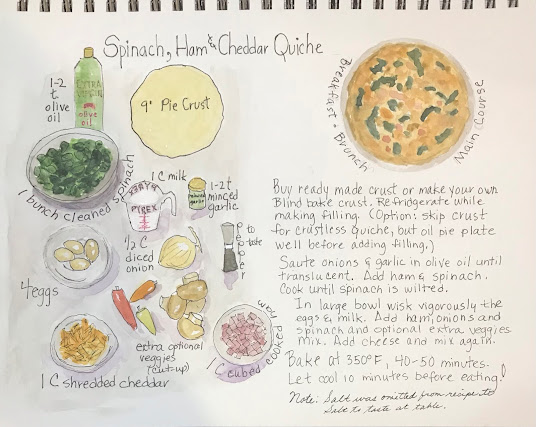 Spinach, Ham & Cheddar Quiche
1-2
t
olive
oil
EXTRA
VIRGIN
olive
oil
9" Pie Crust
Breakfast - Brunch
Main Course
1 bunch cleaned spinach
1 C milk
PYREX
1-2t
minced
garlic
minced garlic
1/2 C
diced
onion
pepper
to
taste
4 eggs
extra optional
veggies
(cut-up)
1 C cubed cooked Ham
1 C shredded cheddar
Buy ready made crust or make your own
Blind bake crust. Refridgerate while
making filling. (Option: skip crust
for crustless quiche, but oil pie plate
well before adding filling.)
Saute onions & garlic in olive oil until
translucent. Add ham & spinach.
Cook until spinach is wilted.
In large bowl wisk vigorously the
eggs & milk. Add ham, onions and
spinach and optional extra veggies
mix. Add cheese and mix again.
Bake at 350°F, 40-50 minutes.
Let cool 10 minutes before eating!
Note: Salt was omitted from recipe to
Salt to taste at table.